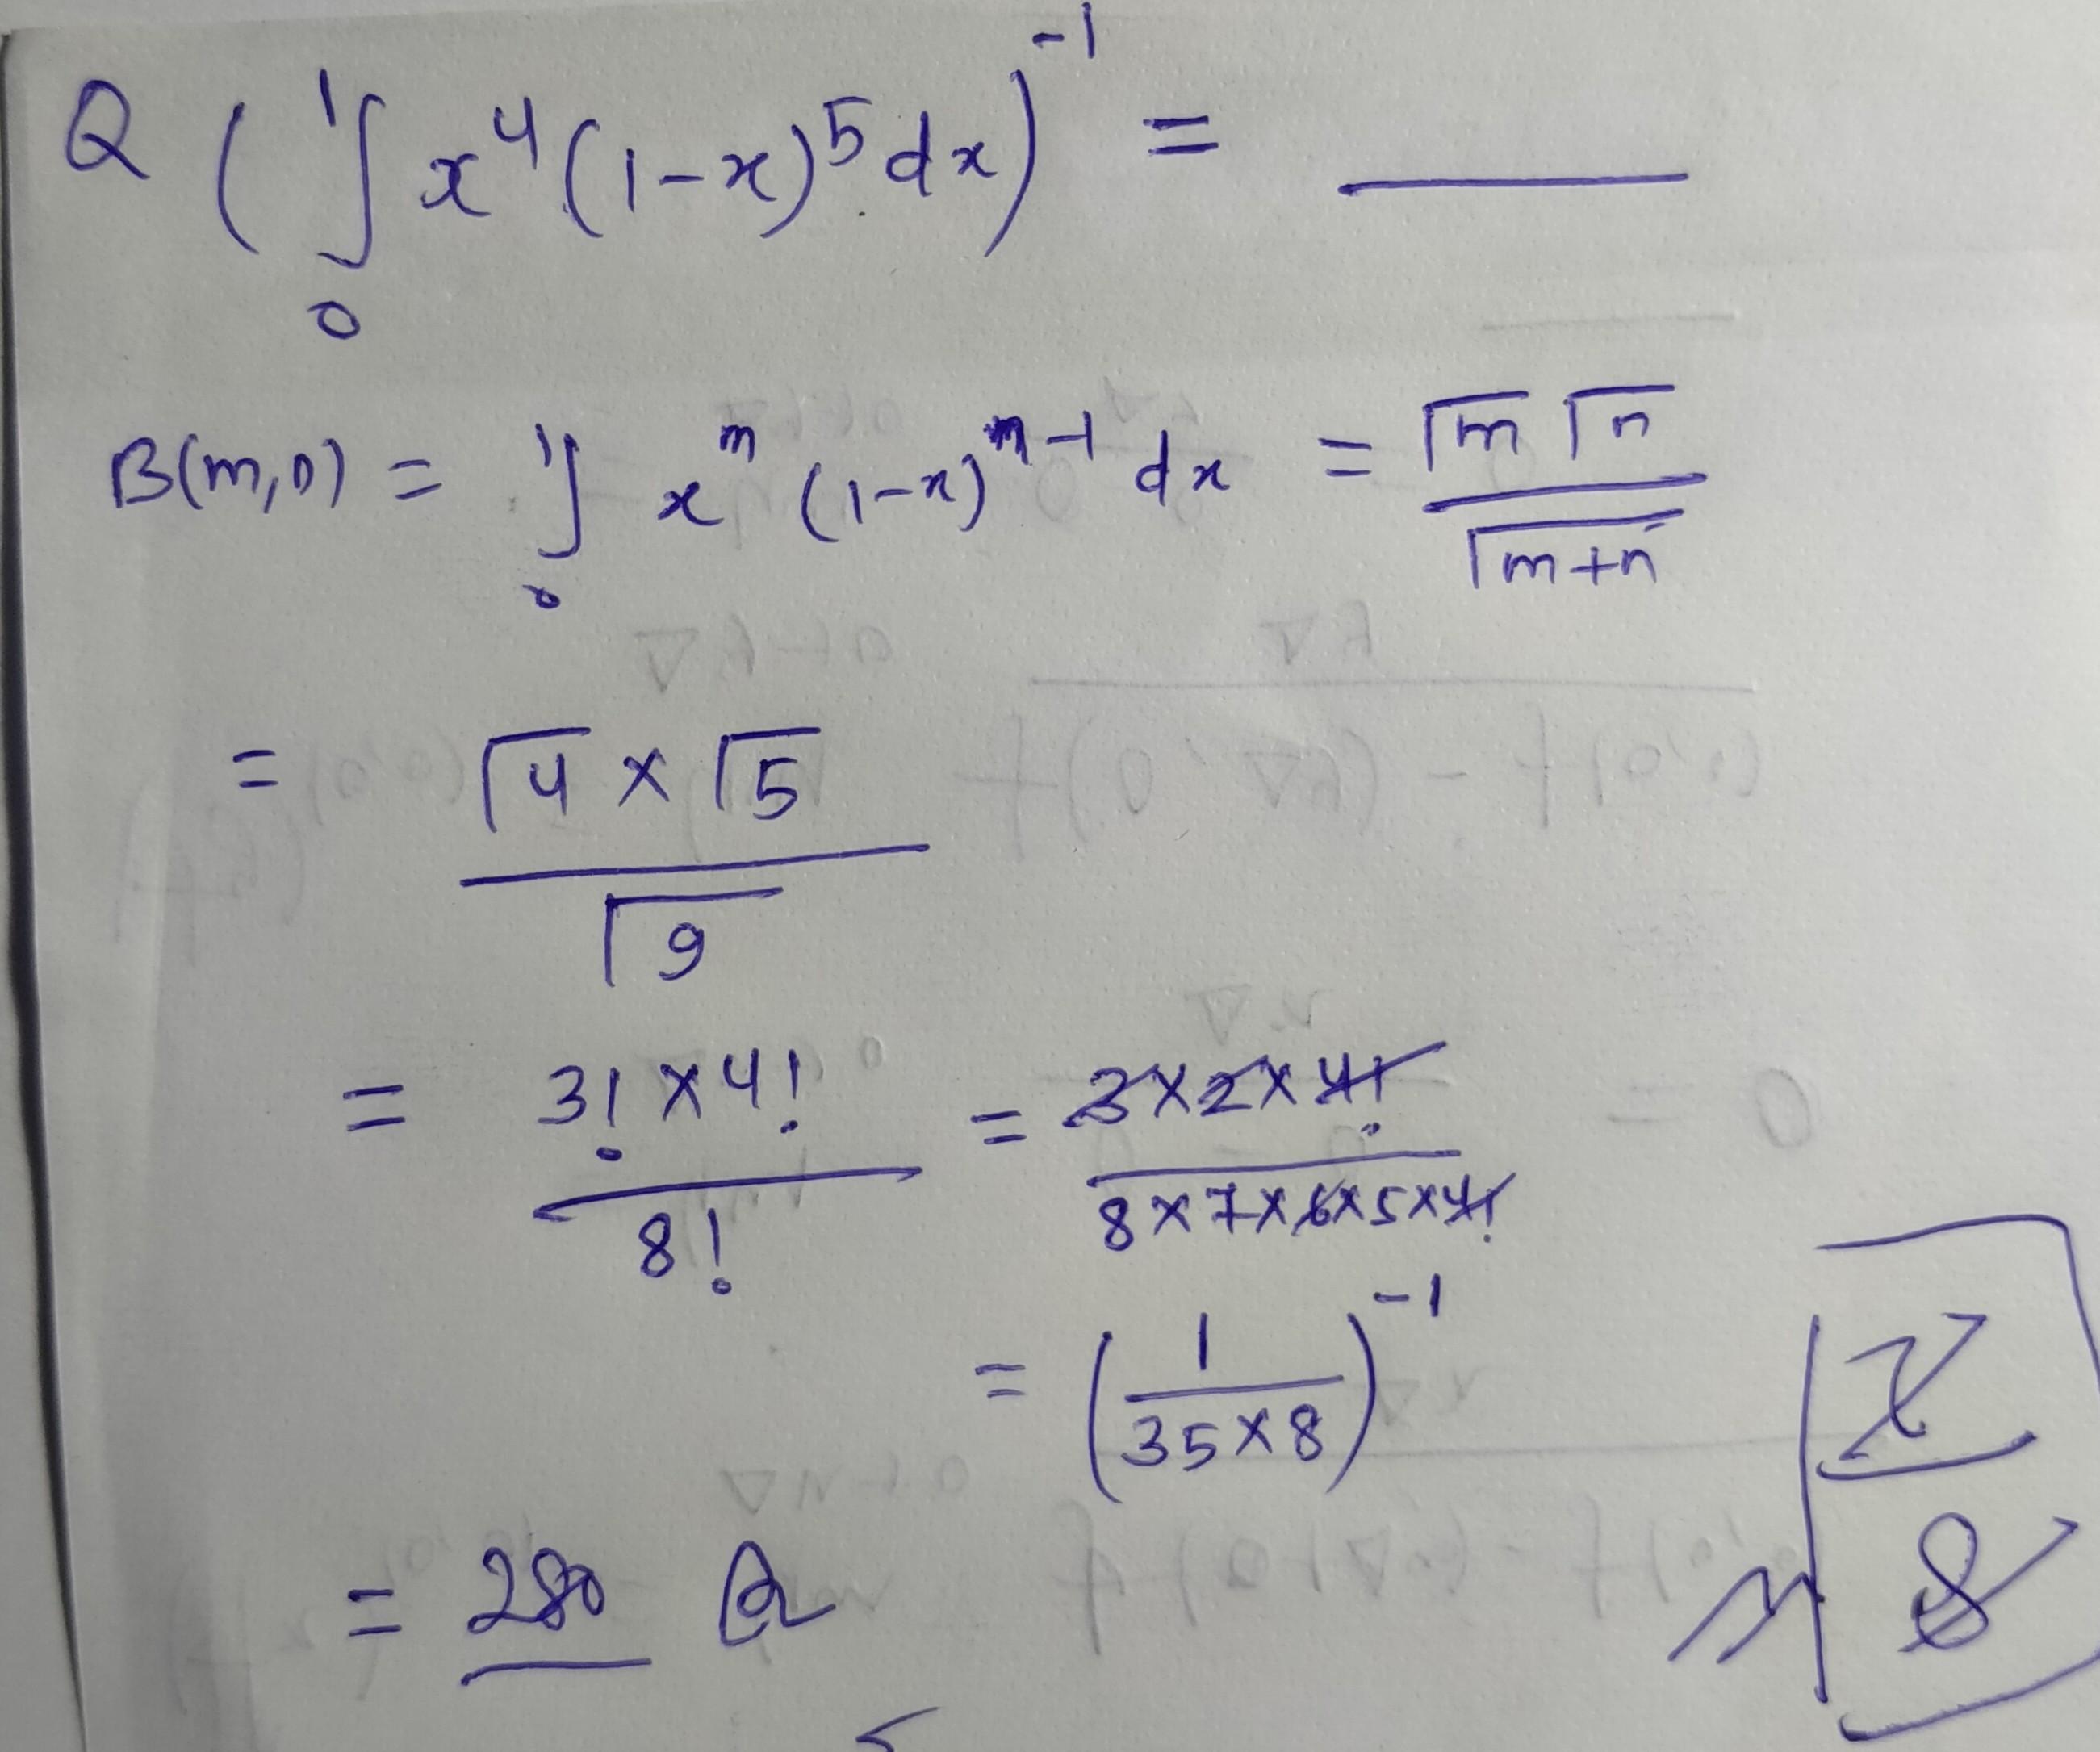 Q (₀∫¹ x⁴(1-x)⁵dx)⁻¹ = ____
B(m,n) = ₀∫¹ xᵐ (1-x)ⁿ⁻¹ dx = Γm Γn / Γm+n
= Γ4 × Γ5 / Γ9
= 3! × 4! / 8! = 3×2×4! / 8×7×6×5×4!
= (1 / 35×8)⁻¹
= 280